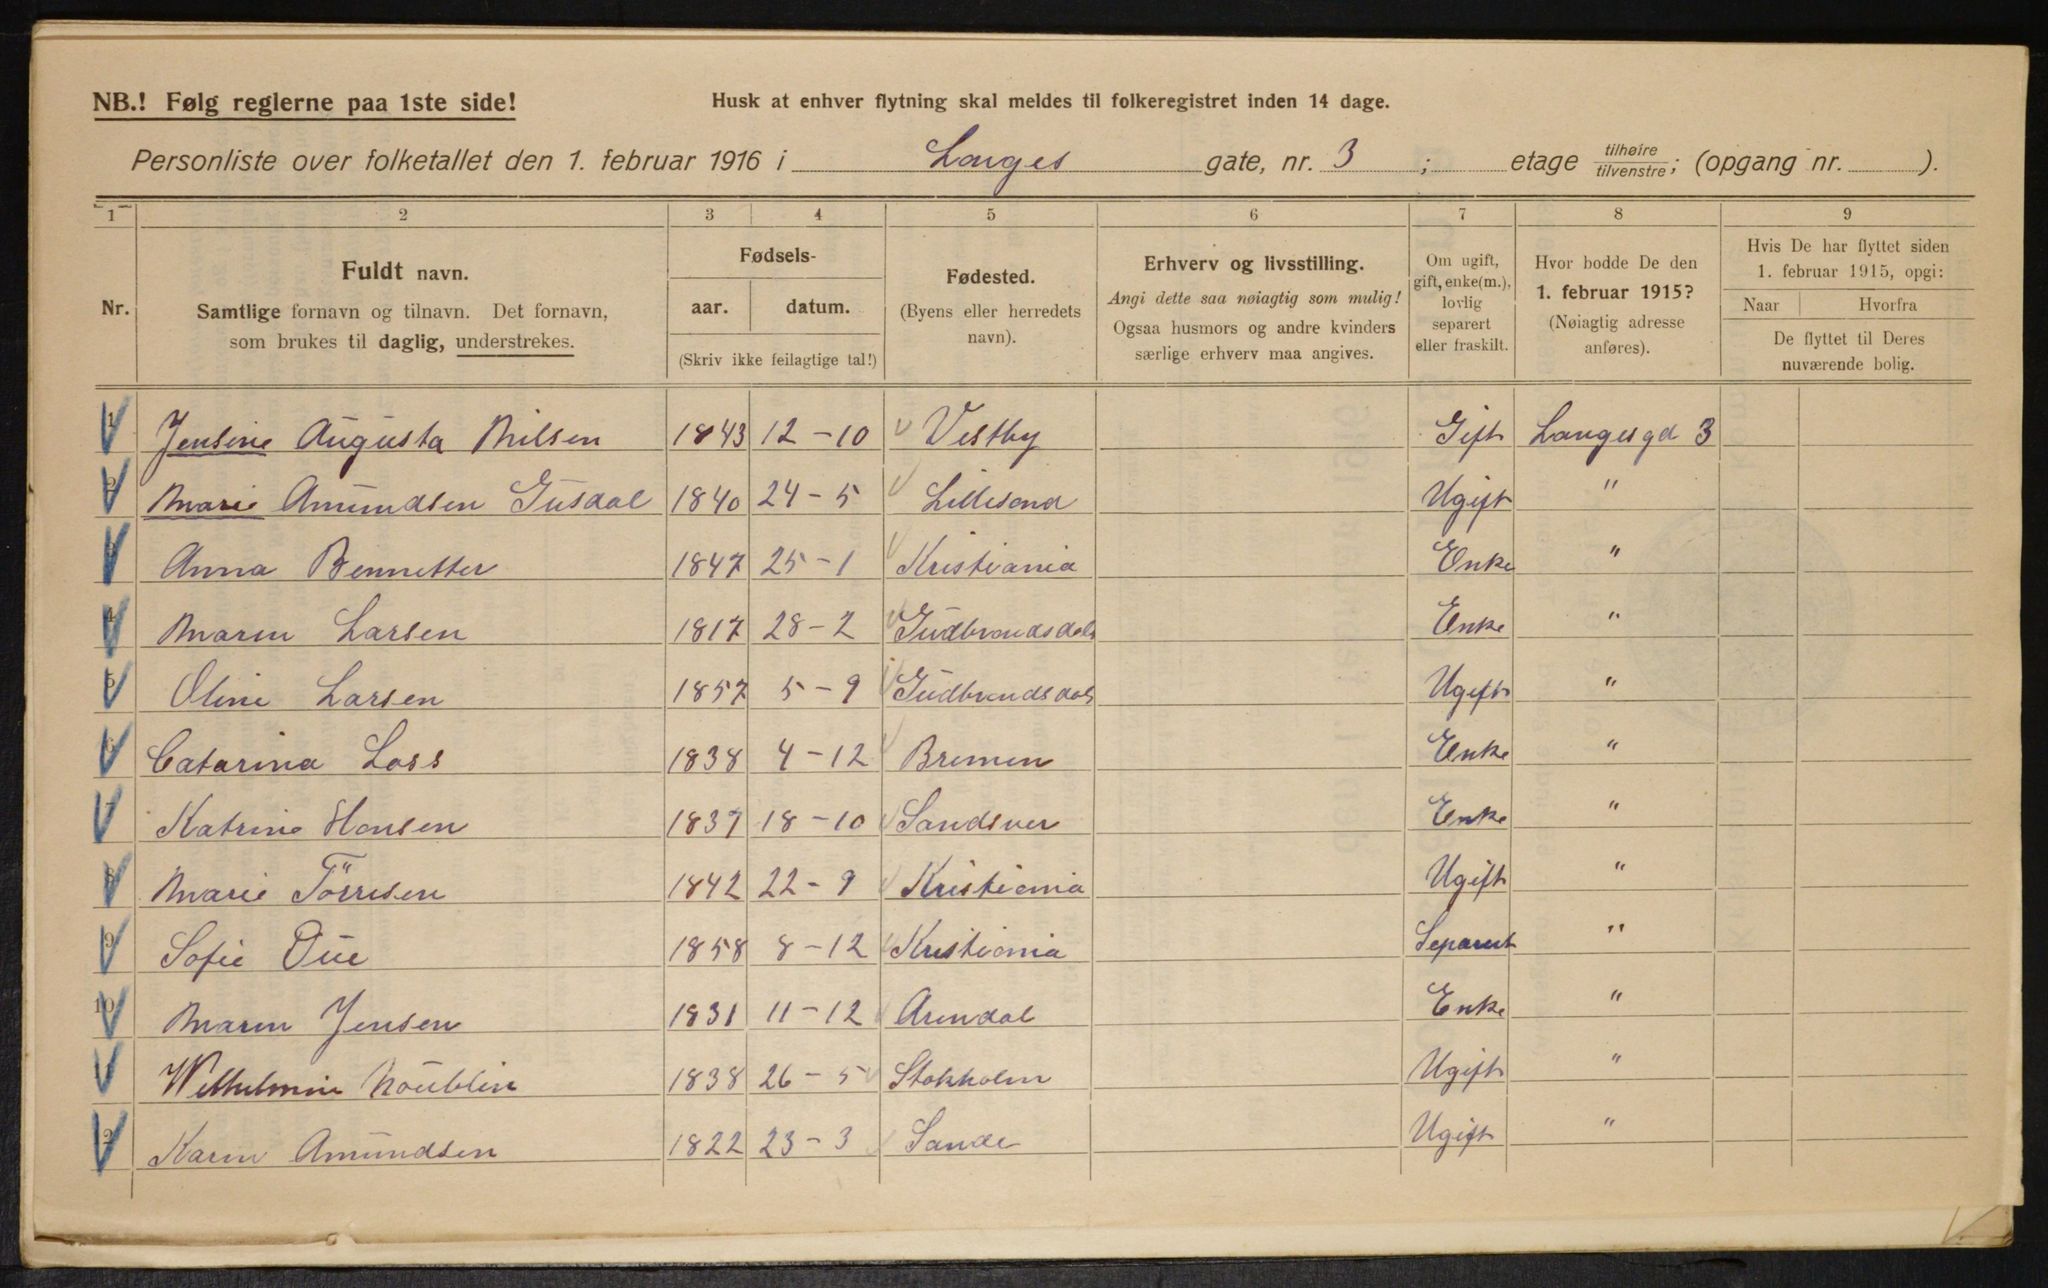 NB.! Følg reglerne paa 1ste side!
Husk at enhver flytning skal meldes til folkeregistret inden 14 dage.
Personliste over folketallet den 1. februar 1916 i Langes gate, nr. 3; etage tilhøire tilvenstre; (opgang nr. ).
1 2 3 4 5 6 7 8 9
Nr.
Fuldt navn.
Samtlige fornavn og tilnavn. Det fornavn,
som brukes til daglig, understrekes.
Fødsels-
aar. datum.
(Skriv ikke feilagtige tal!)
Fødested.
(Byens eller herredets
navn).
Erhverv og livsstilling.
Angi dette saa nøiagtig som mulig!
Ogsaa husmors og andre kvinders
særlige erhverv maa angives.
Om ugift,
gift, enke(m.),
lovlig
separert
eller fraskilt.
Hvor bodde De den
1. februar 1915?
(Nøiagtig adresse
anføres).
Hvis De har flyttet siden
1. februar 1915, opgi:
Naar Hvorfra
De flyttet til Deres
nuværende bolig.
1 Jensine Augusta Nilsen 1843 12-10 Vestby Gift Langesgd 3
2 Marie Amundsen Gusdal 1840 24-5 Lillesand Ugift "
3 Anna Bennetter 1847 25-1 Kristiania Enke "
4 Maren Larsen 1817 28-2 Gudbrandsdal Enke "
5 Oline Larsen 1857 5-9 Gudbrandsdal Ugift "
6 Catarina Loss 1838 4-12 Bremen Enke "
7 Katrine Hansen 1837 18-10 Sandsver Enke "
8 Marie Törresen 1842 22-9 Kristiania Ugift "
9 Sofie Due 1858 8-12 Kristiania Separert "
10 Maren Jensen 1831 11-12 Arendal Enke "
Wilhelmine 1838 26-5 Stokholm Ugift "
12 Karen Amundsen 1822 23-3 Sande Ugift "